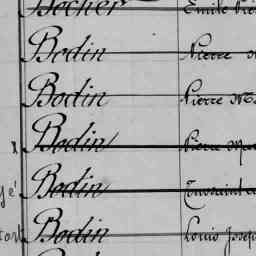 Bocher Emile
Bodin Pierre
Bodin Pierre M
Bodin Pierre Mar
Bodin Toussaint
Bodin Louis Josep